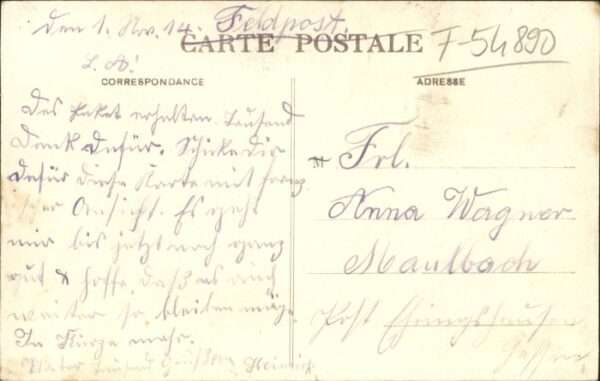 den 1. Nov. 14. Feldpost.
CARTE POSTALE
F-54890
L. A!
CORRESPONDANCE
ADRESSE
Das Paket erhalten. Tausend
Dank dafür. Schicke Dir
dafür diese Karte mit franz
Ansicht. Es geht
mir bis jetzt noch ganz
gut & hoffe, daß es auch
weiter so bleiben möge.
In Kürze mehr.
Weiter tausend Heinrich
M
Frl.
Anna Wagner
Maulbach
Post
Hessen